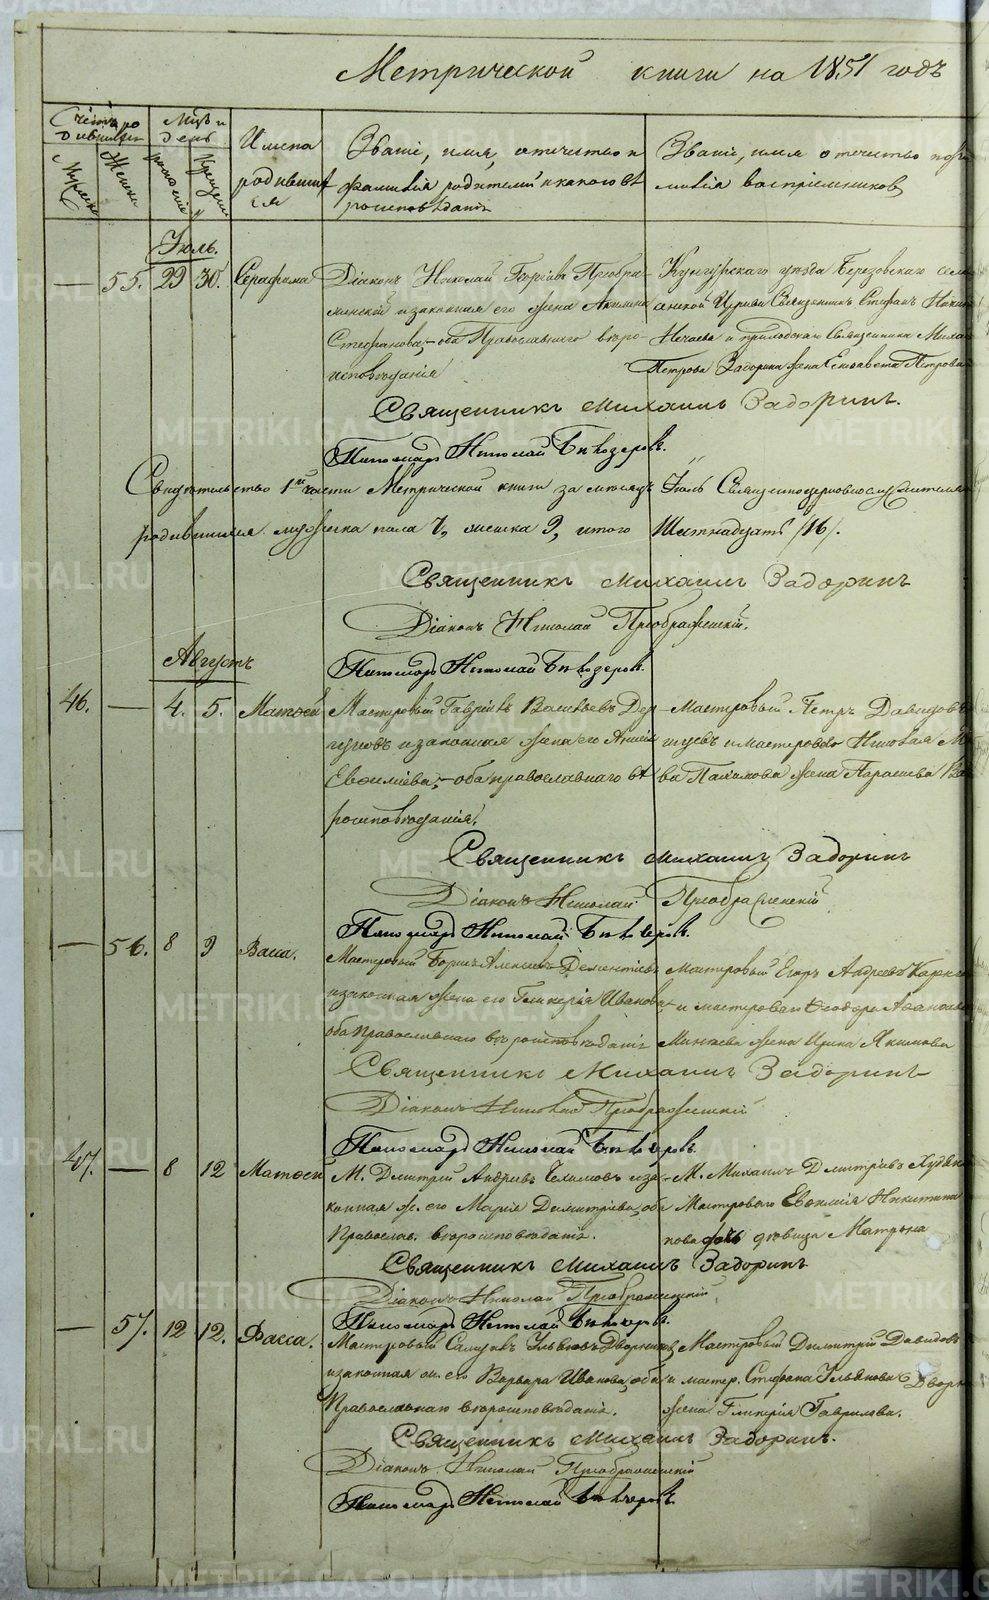 Метрической книги на 1851 годъ
Счетъ родившихся
Мужеска
Женска
Мцъ и день
рожденія
крещенія
Имена родившихся
Званіе, имя, отчество и
фамилія родителей и какого вѣ
роисповѣданія
Званіе, имя отчество и фа
милія воспріемниковъ
Іюль.
— 55. 29 30. Серафима
Діаконъ Николай Георгіевъ Преобра
женскій и законная его жена Акилина
Стефанова, оба Православнаго вѣро
исповѣданія
Кунгурскаго уѣзда Березовскаго села
Церкви Священникъ Стефанъ
Нечаевъ и приходскаго Священника Миха
Петрова Задорина жена Елисавета Петрова
Священникъ Михаилъ Задоринъ.
Пономарь Николай Бѣлозеровъ.
Свидѣтельство 1й части Метрической книги за мѣсяцъ Іюль Священноцерковнослужители
родившихся мужеска пола 7, женска 9, итого Шестнадцать /16/.
Священникъ Михаилъ Задоринъ
Діаконъ Николай Преображенскій.
Пономарь Николай Бѣлозеровъ.
Августъ
46. — 4. 5. Матвей
Мастеровый Гавріилъ Васильевъ
и законная жена его
Евфиміева, оба православнаго вѣ
роисповѣданія.
Мастеровый Петръ Давидовъ
и мастероваго
жена Параскева
Священникъ Михаилъ Задоринъ
Діаконъ Николай Преображенскій
Пономарь Николай Бѣлозеровъ.
— 56. 8 9 Васса.
Мастеровый Борисъ Алексѣевъ Дементьевъ
и законная жена его Гликерія Иванова
оба Православнаго вѣроисповѣданія
Мастеровый Егоръ Андреевъ
и мастероваго Ѳеодора
Минѣева жена Ирина Якимова
Священникъ Михаилъ Задоринъ
Діаконъ Николай Преображенскій
Пономарь Николай Бѣлозеровъ.
47. — 8 12 Матвей
М. Димитрій Андреевъ и за
конная ж. его Марія Димитріева, оба
Православ. вѣроисповѣданія.
М. Михаилъ Димитріевъ
Мастероваго Евфимія Никитина
дочь дѣвица Матрона
Священникъ Михаилъ Задоринъ
Діаконъ Николай Преображенскій
Пономарь Николай Бѣлозеровъ.
— 57. 12 12. Васса.
Мастеровый Ульяновъ Дворниковъ
и законная ж. его Варвара Иванова, оба
Православнаго вѣроисповѣданія.
Мастеровый Димитрій Давидовъ
и мастер. Стефана Ульянова
жена Гликерія Гаврилова.
Священникъ Михаилъ Задоринъ.
Діаконъ Николай Преображенскій
Пономарь Николай Бѣлозеровъ.
METRIKI.GASO-URAL.RU